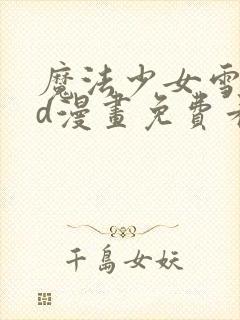 魔法少女雪
d漫畫免費
千島女妖